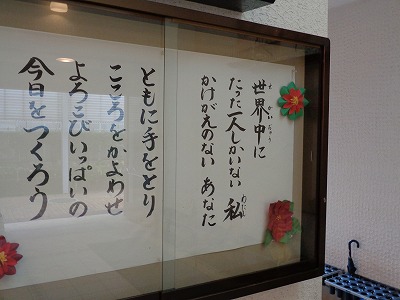 世界中に
たった一人しかいない 私
かけがえのない あなた
ともに手をとり
こころをかよわせ
よろこびいっぱいの
今日をつくろう